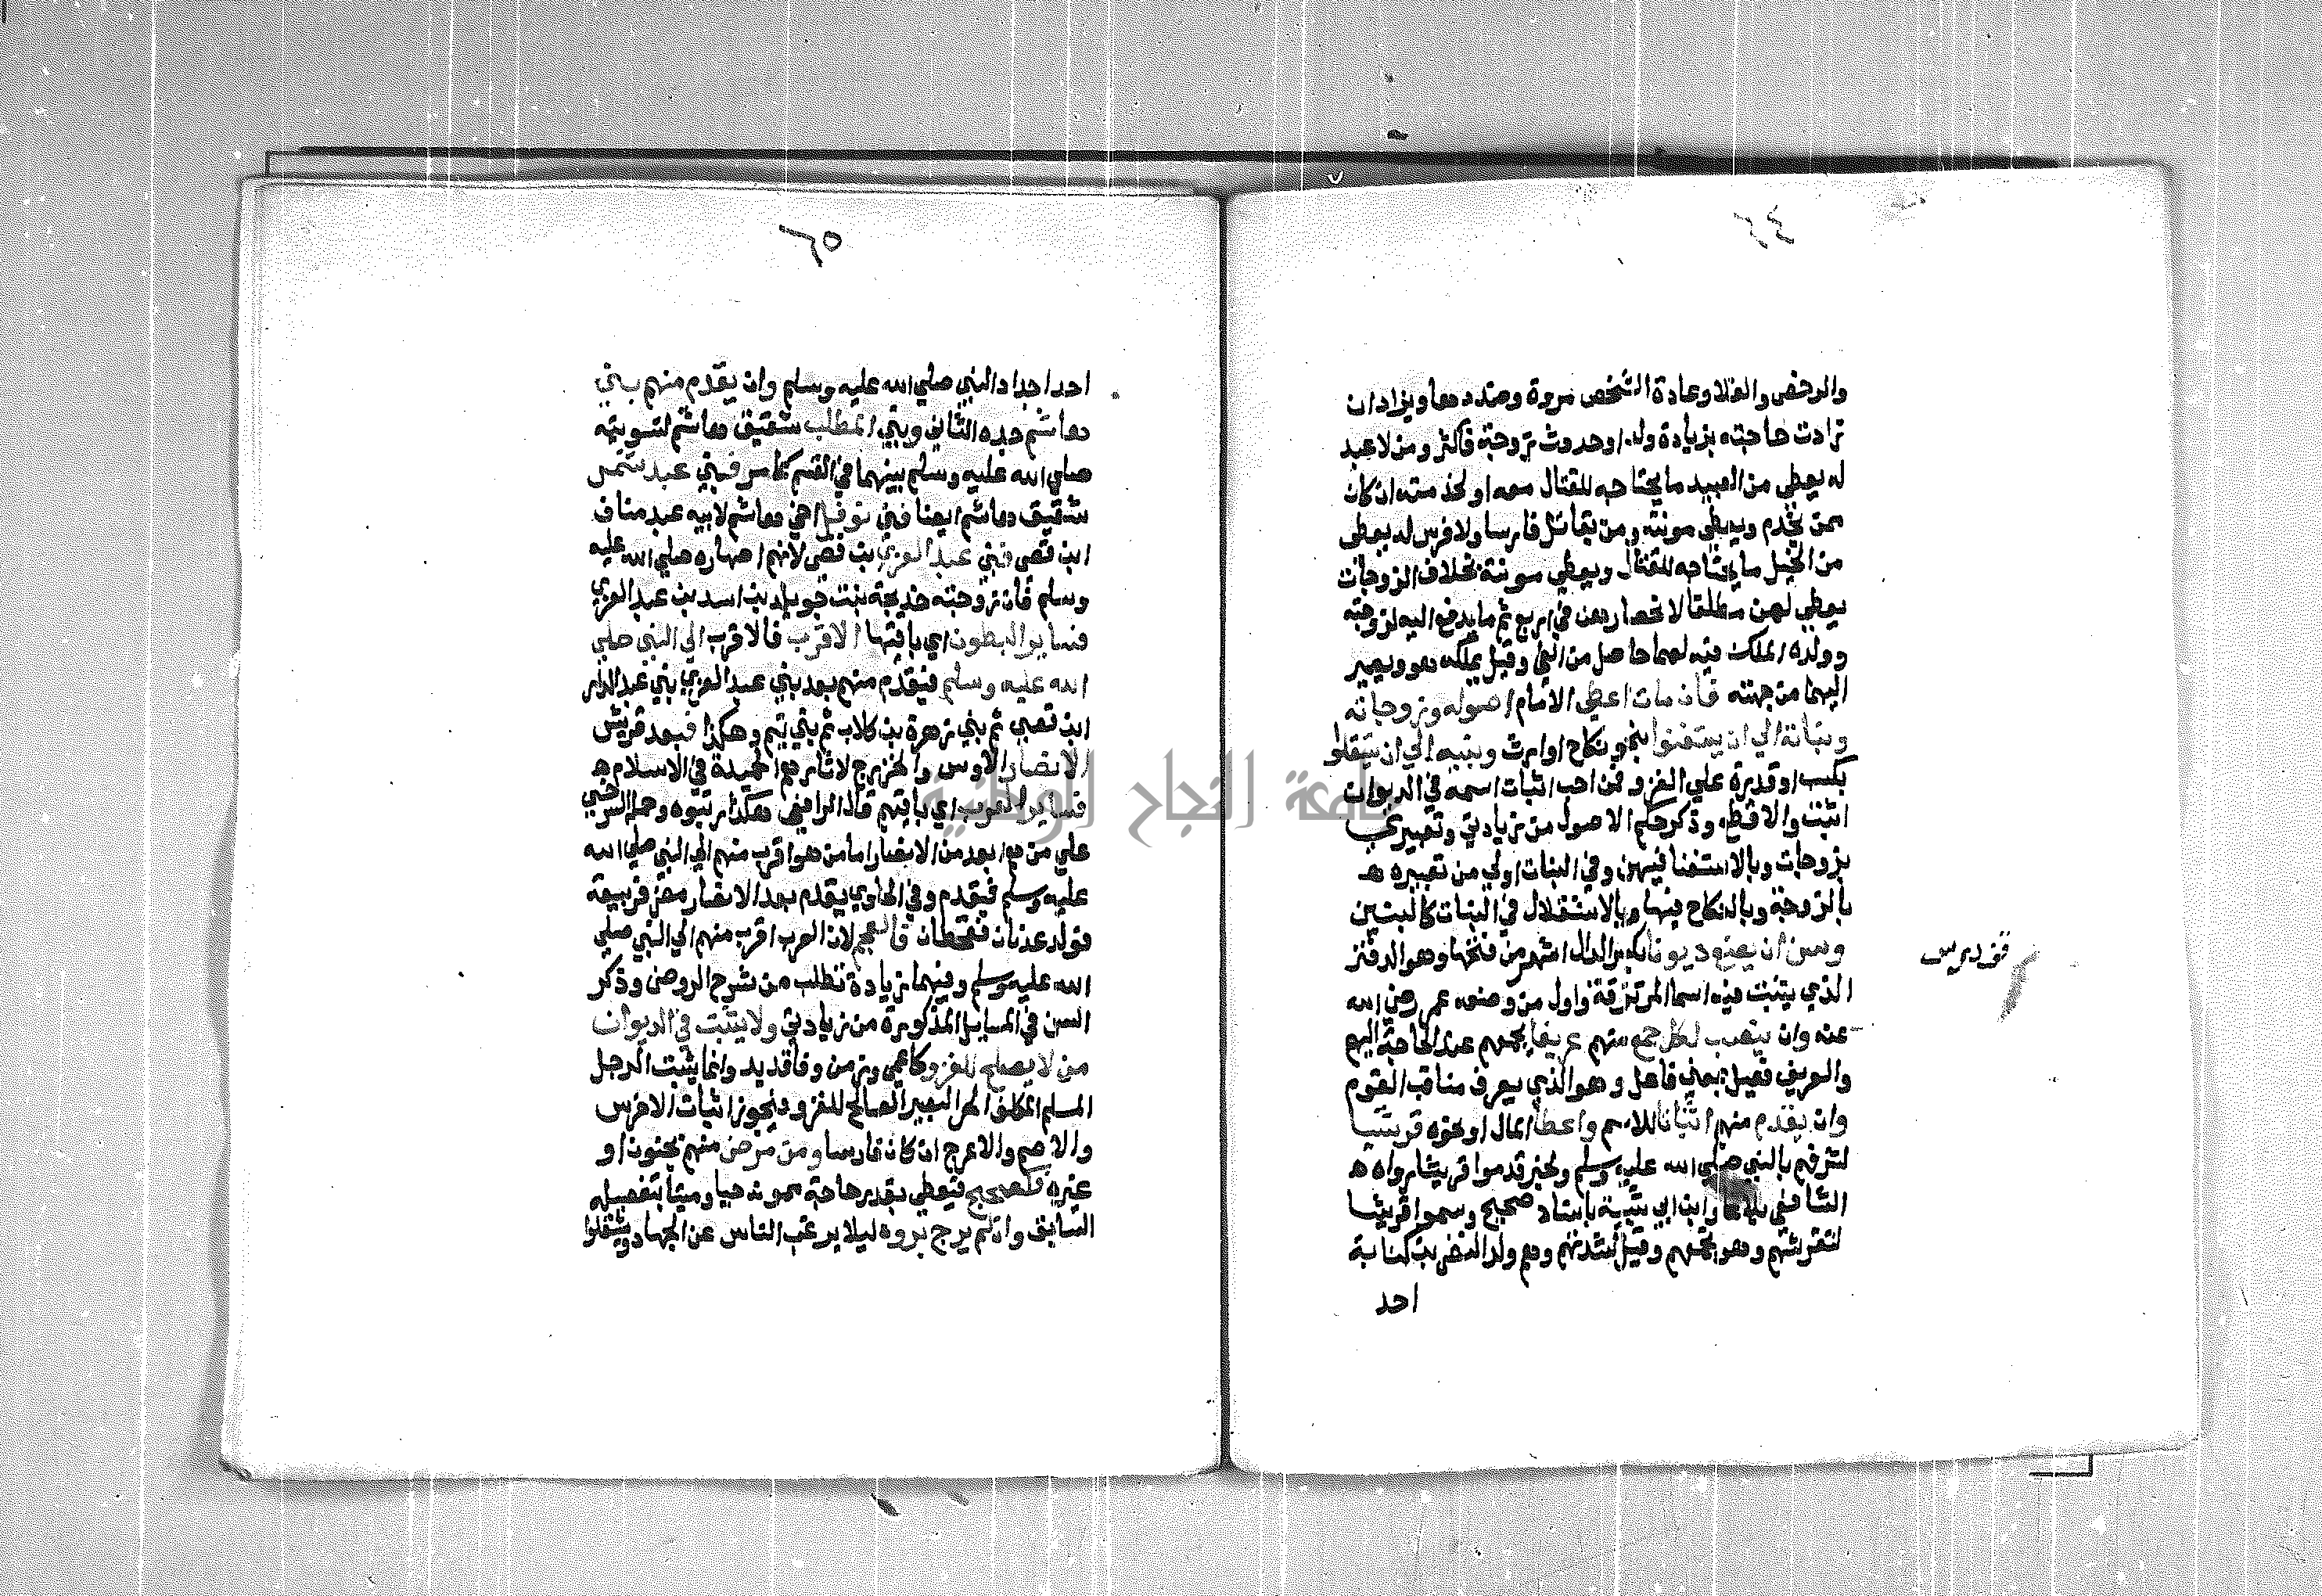 ٦٤
والرخص والغلا وعادة الشخص مروة وضدها ويزاد ان
زادت حاجته بزيادة ولد او حدوث زوجة فاكثر ومن لا عبد
له يعطى من العبيد ما يحتاجه للقتال معه او لخدمته ان كان
ممن يخدم ويعطى مونته ومن يقاتل فارسا ولا فرس له يعطى
من الخيل ما يحتاجه للقتال ويعطي مونته بخلاف الزوجات
يعطي لهن مطلقا لانحصارهن في اربع ثم ما يدفع اليه لزوجته
وولده الملك فيه لهما حاصل من الفي وقيل يملكه هو ويصير
اليهما من جهته فان مات اعطى الامام اصوله وزوجاته
وبناته الي ان يستغنوا بنحو نكاح او ارث وبنيه الي ان يستقلوا
بكسب او قدرة علي الغزو فمن احب اثبات اسمه في الديوان
اثبت والا قطع وذكر حكم الاصول من زيادتي وتعبيري
بزوجات وبالاستغنا فيهن وفي البنات اولي من تعبيره هـ
بالزوجة وبالنكاح فيها وبالاستقلال في البنات كالبنين
وسن ان يضع ديوانا بكسر الدال اشهر من فتحها وهو الدفتر
الذي يثبت فيه اسما المرتزقة واول من وضعه عمر رضي الله
عنه وان ينصب لكل جمع منهم عريفا يجمعهم عند الحاجة اليهم
والعريف فعيل بمعني فاعل وهو الذي يعرف مناقب القوم
وان يقدم منهم اثباتا للاسم واعطا المال او نحوه قريشا
لشرفهم بالنبي صلي الله عليه وسلم ولخبر قدموا قريشا رواه هـ
الشافعي بلاغا وابن ابي شيبة باسناد صحيح وسموا قريشا
لتقرشهم وهو تجمعهم وقيل لشدتهم وهم ولد النضر بن كنانة
احد
٦٥
احد اجداد النبي صلي الله عليه وسلم وان يقدم منهم بني
هاشم جده الثاني وبني المطلب شقيق هاشم لتسويته
صلي الله عليه وسلم بينهما في القسم كما مر فبني عبد شمس
شقيق هاشم ايضا فبني نوفل اخي هاشم لابيه عبد مناف
ابن قصي فبني عبد العزي بن قصي لانهم اصهاره صلي الله عليه
وسلم فان زوجته خديجة بنت خويلد بن اسد بن عبد العزي
فساير البطون اي باقيها الاقرب فالاقرب الي النبي صلي
الله عليه وسلم فيقدم منهم بعد بني عبد العزي بني عبد الدار
ابن قصي ثم بني زهرة بن كلاب ثم بني تيم وهكذا فبعد قريش
الانصار الاوس والخزرج لاثارهم الحميدة في الاسلام هـ
فساير العرب اي باقيهم قال الرافعي هكذا رتبوه وحمله السرخسي
علي من هو ابعد من الانصار اما من هو اقرب منهم الي النبي صلي الله
عليه وسلم فيقدم وفي الحاوي يقدم بعد الانصار مضر فربيعة
فولد عدنان فقحطان فالعجم لان العرب اقرب منهم الي النبي صلي
الله عليه وسلم وفيهما زيادة تطلب من شرح الروض وذكر
السن في المسايل المذكورة من زيادتي ولا يثبت في الديوان
من لا يصلح للغزو كاعمي وزمن وفاقد يد وانما يثبت الرجل
المسلم المكلف الحر البصير الصالح للغزو فيجوز اثبات الاخرس
والاصم والاعرج ان كان فارسا ومن مرض منهم بجنون او
غيره فكصحيح فيعطى بقدر حاجة ممونه حيا وميتا بتفصيله
السابق وان لم يرج بروه ليلا يرغب الناس عن الجهاد ويشتغلوا
جامعة النجاح الوطنية